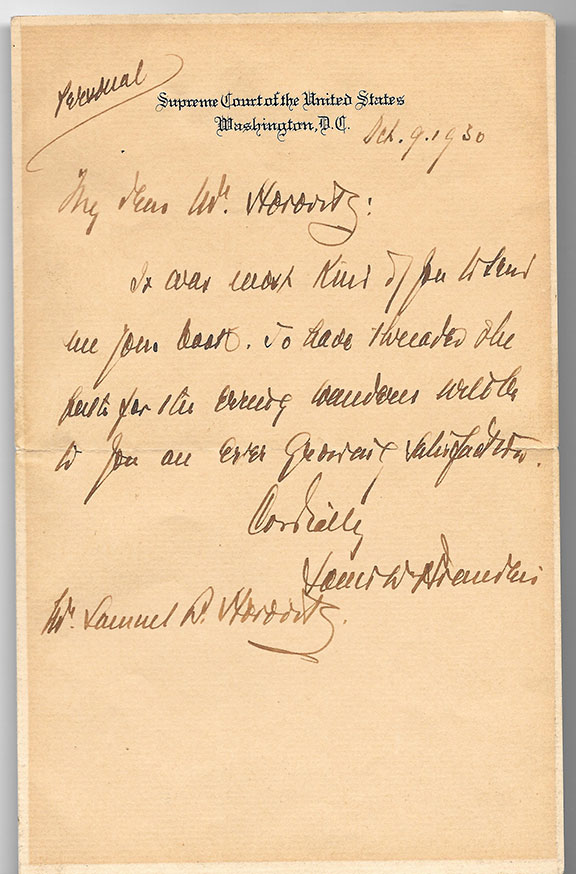 Personal
Supreme Court of the United States
Washington, D.C.
Oct. 9. 1930
My dear Mr. Horovitz:
It was most kind of you to send
me your book. To have threaded the
path for the erring wanderers will be
to you an ever growing satisfaction.
Cordially
Louis D. Brandeis
Mr. Samuel B. Horovitz.